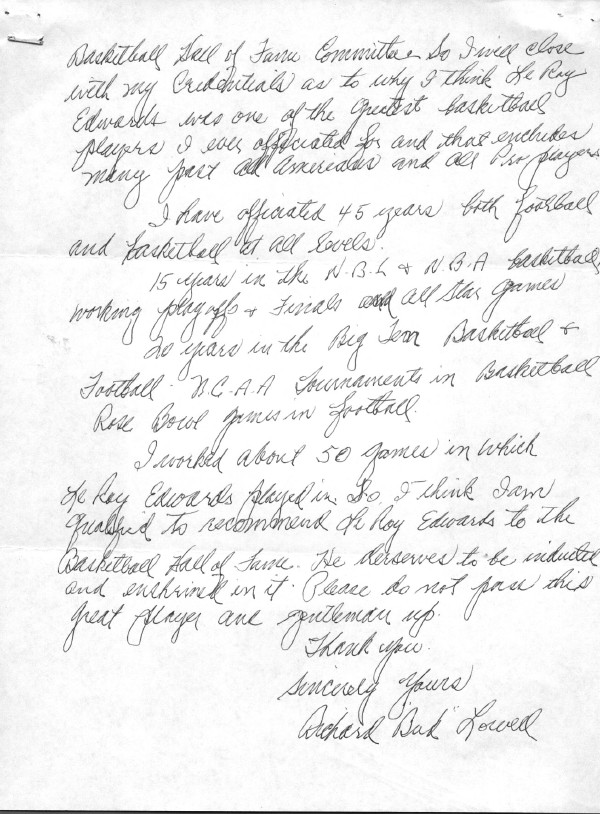 Basketball Hall of Fame Committee So I will close
with my Credentials as to why I think Le Roy
Edwards was one of the greatest basketball
players I ever officiated for and that encludes
many past all Americans and all Pro players
I have officiated 45 years both football
and basketball at all levels.
15 years in the N.B.L & N.B.A basketball,
working playoffs & Finals and all Star games
20 years in the Big Ten Basketball &
Football - N.C.A.A Tournaments in Basketball
Rose Bowl games in football.
I worked about 50 games in which
Le Roy Edwards played in. So, I think I am
qualified to recommend Le Roy Edwards to the
Basketball Hall of Fame. He derserves to be inducted
and enshrined in it. Please do not pass this
great player and gentleman up.
Thank you.
Sincerely Yours
Richard "Lowell